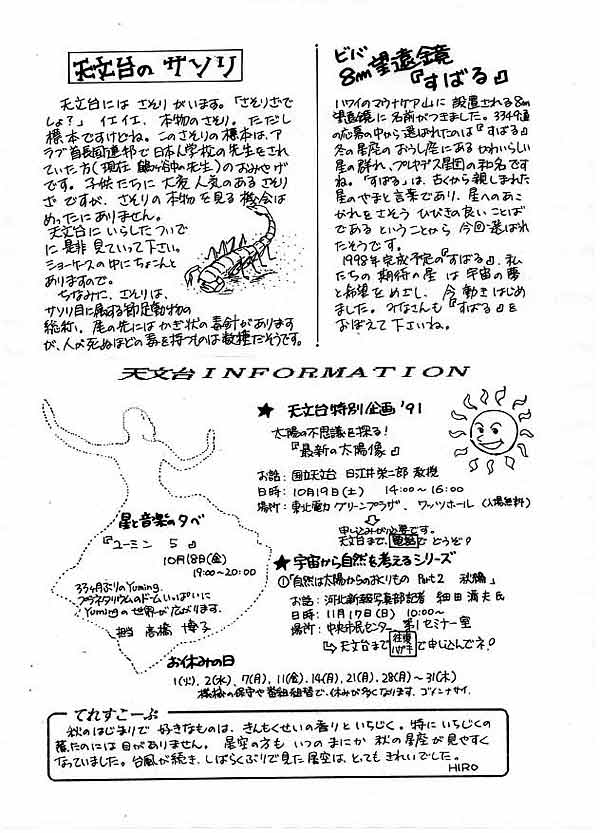 天文台の サソリ
天文台には さそりがいます。「さそりざで
しょ?」 イエイエ、本物のさそり。ただし
標本ですけどね。このさそりの標本は、ア
ラブ首長国連邦で日本人学校の先生をされ
ていた方(現在 鶴ヶ谷中の先生)のおみやげ
です。子供たちに大変人気のあるさそり
ざですが、さそりの本物を見る機会は
めったにありません。
天文台にいらしたついで
に是非見ていって下さい。
ショーケースの中にちょこんと
ありますので。
ちなみに、さそりは、
サソリ目に属する節足動物の
総称。尾の先にはかぎ状の毒針があります
が、人が死ぬほどの毒を持つものは数種だそうです。
ビバ
8m望遠鏡
『すばる』
ハワイのマウナケア山に設置される8m
望遠鏡に名前がつきました。3349通
の応募の中から選ばれたのは『すばる』
冬の星座のおうし座にあるかわいらしい
星の群れ、プレヤデス星団の和名です
ね。「すばる」は、古くから親しまれた
星のやまと言葉であり、星へのあこ
がれをさそう ひびきの良いことば
であるということから 今回選ばれ
たそうです。
1998年完成予定の『すばる』、私
たちの 期待の星 は 宇宙の夢
と希望をめざし、今動きはじめ
ました。みなさんも『すばる』を
おぼえて下さいね。
天文台INFORMATION
星と音楽の夕べ
『ユーミン 5』
10月18日(金)
19:00〜20:00
33ヶ月ぶりのYuming。
プラネタリウムのドームいっぱいに
Yumingの世界が広がります。
担当 高橋 博子
★ 天文台特別企画 '91
太陽の不思議を探る!
『最新の太陽像』
お話: 国立天文台 日江井栄二郎 教授
日時: 10月19日(土) 14:00〜16:00
場所: 東北電力グリーンプラザ、ワッツホール (入場無料)
申し込みが必要です。
天文台まで、電話でどうぞ?
★宇宙から自然を考えるシリーズ
①「自然は太陽からのおくりもの Part2 秋編」
お話: 河北新報写真部記者 細田 清夫氏
日時: 11月17日(日) 10:00〜
場所: 中央市民センター 第1セミナー室
⇨ 天文台まで往復ハガキで申し込んでネ。
お休みの日
1(火)、2(水)、7(月)、11(金)、14(月)、21(月)、28(月)〜31(木)
機械の保守や番組組替で、休みが多くなります、ゴメンナサイ。
てれすこーぷ
秋のはじまりで 好きなものは、きんもくせいの香りといちじく。特にいちじくの
煮たのには目がありません。 星空の方も いつのまにか 秋の星座が見やすく
なっていました。台風が続き、しばらくぶりで見た星空は、とってもきれいでした。
HIRO